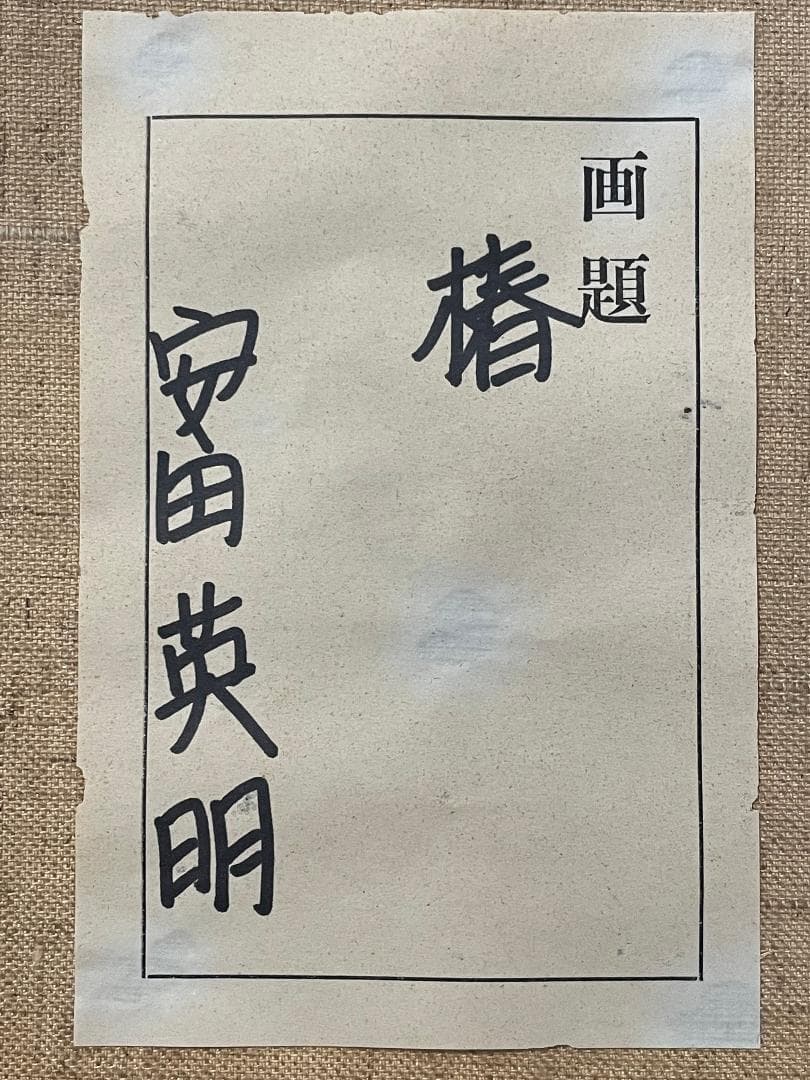 画題
椿
安田英明